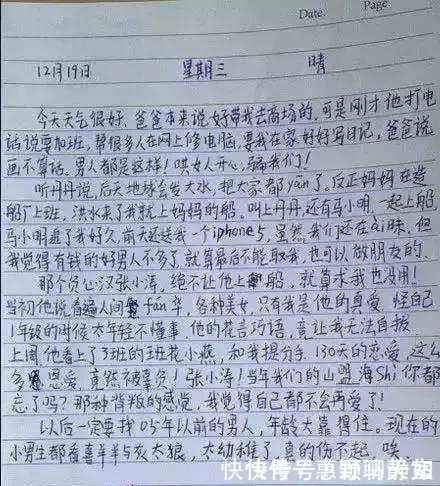 Date. Page.
12月19日 星期三 晴
今天天气很好，爸爸本来说好带我去商场的，可是刚才他打电
话说要加班，帮很多人在网上修电脑，要我在家好好写日记，爸爸说
画不算话。男人都是这样！哄女人开心，骗我们！
听丹丹说，后天地球会发大水，把大家都yān了。反正妈妈在造
船厂上班，洪水来了我就上妈妈的船。叫上丹丹，还有马小明，一起上船，
马小明追了我好久，前天还送我一个iphone5，虽然我们还在ai昧，但
我觉得有钱的好男人不多了，就算最后不能取我，也可以做朋友的。
那个负心汉张小涛，绝不让他上船，就算求我也没用！
当初他说看遍人间fán华，各种美女，只有我是他的真爱，怪自己
1年级的时候太年轻不懂事，他的花言巧语，竟让我无法自拔
上周他看上了3班的班花小燕，和我提分手，130天的恋爱，这么
多恩爱，竟然被辜负！张小涛！当年我们的山盟海Shi你都
忘了吗？那种背叛的感觉，我觉得自己都不会再爱了！
以后一定要找05年以前的男人，年龄大靠得住。现在的
小男生都看喜羊羊与灰太狼，太幼稚了，真的伤不起，唉。
快传号